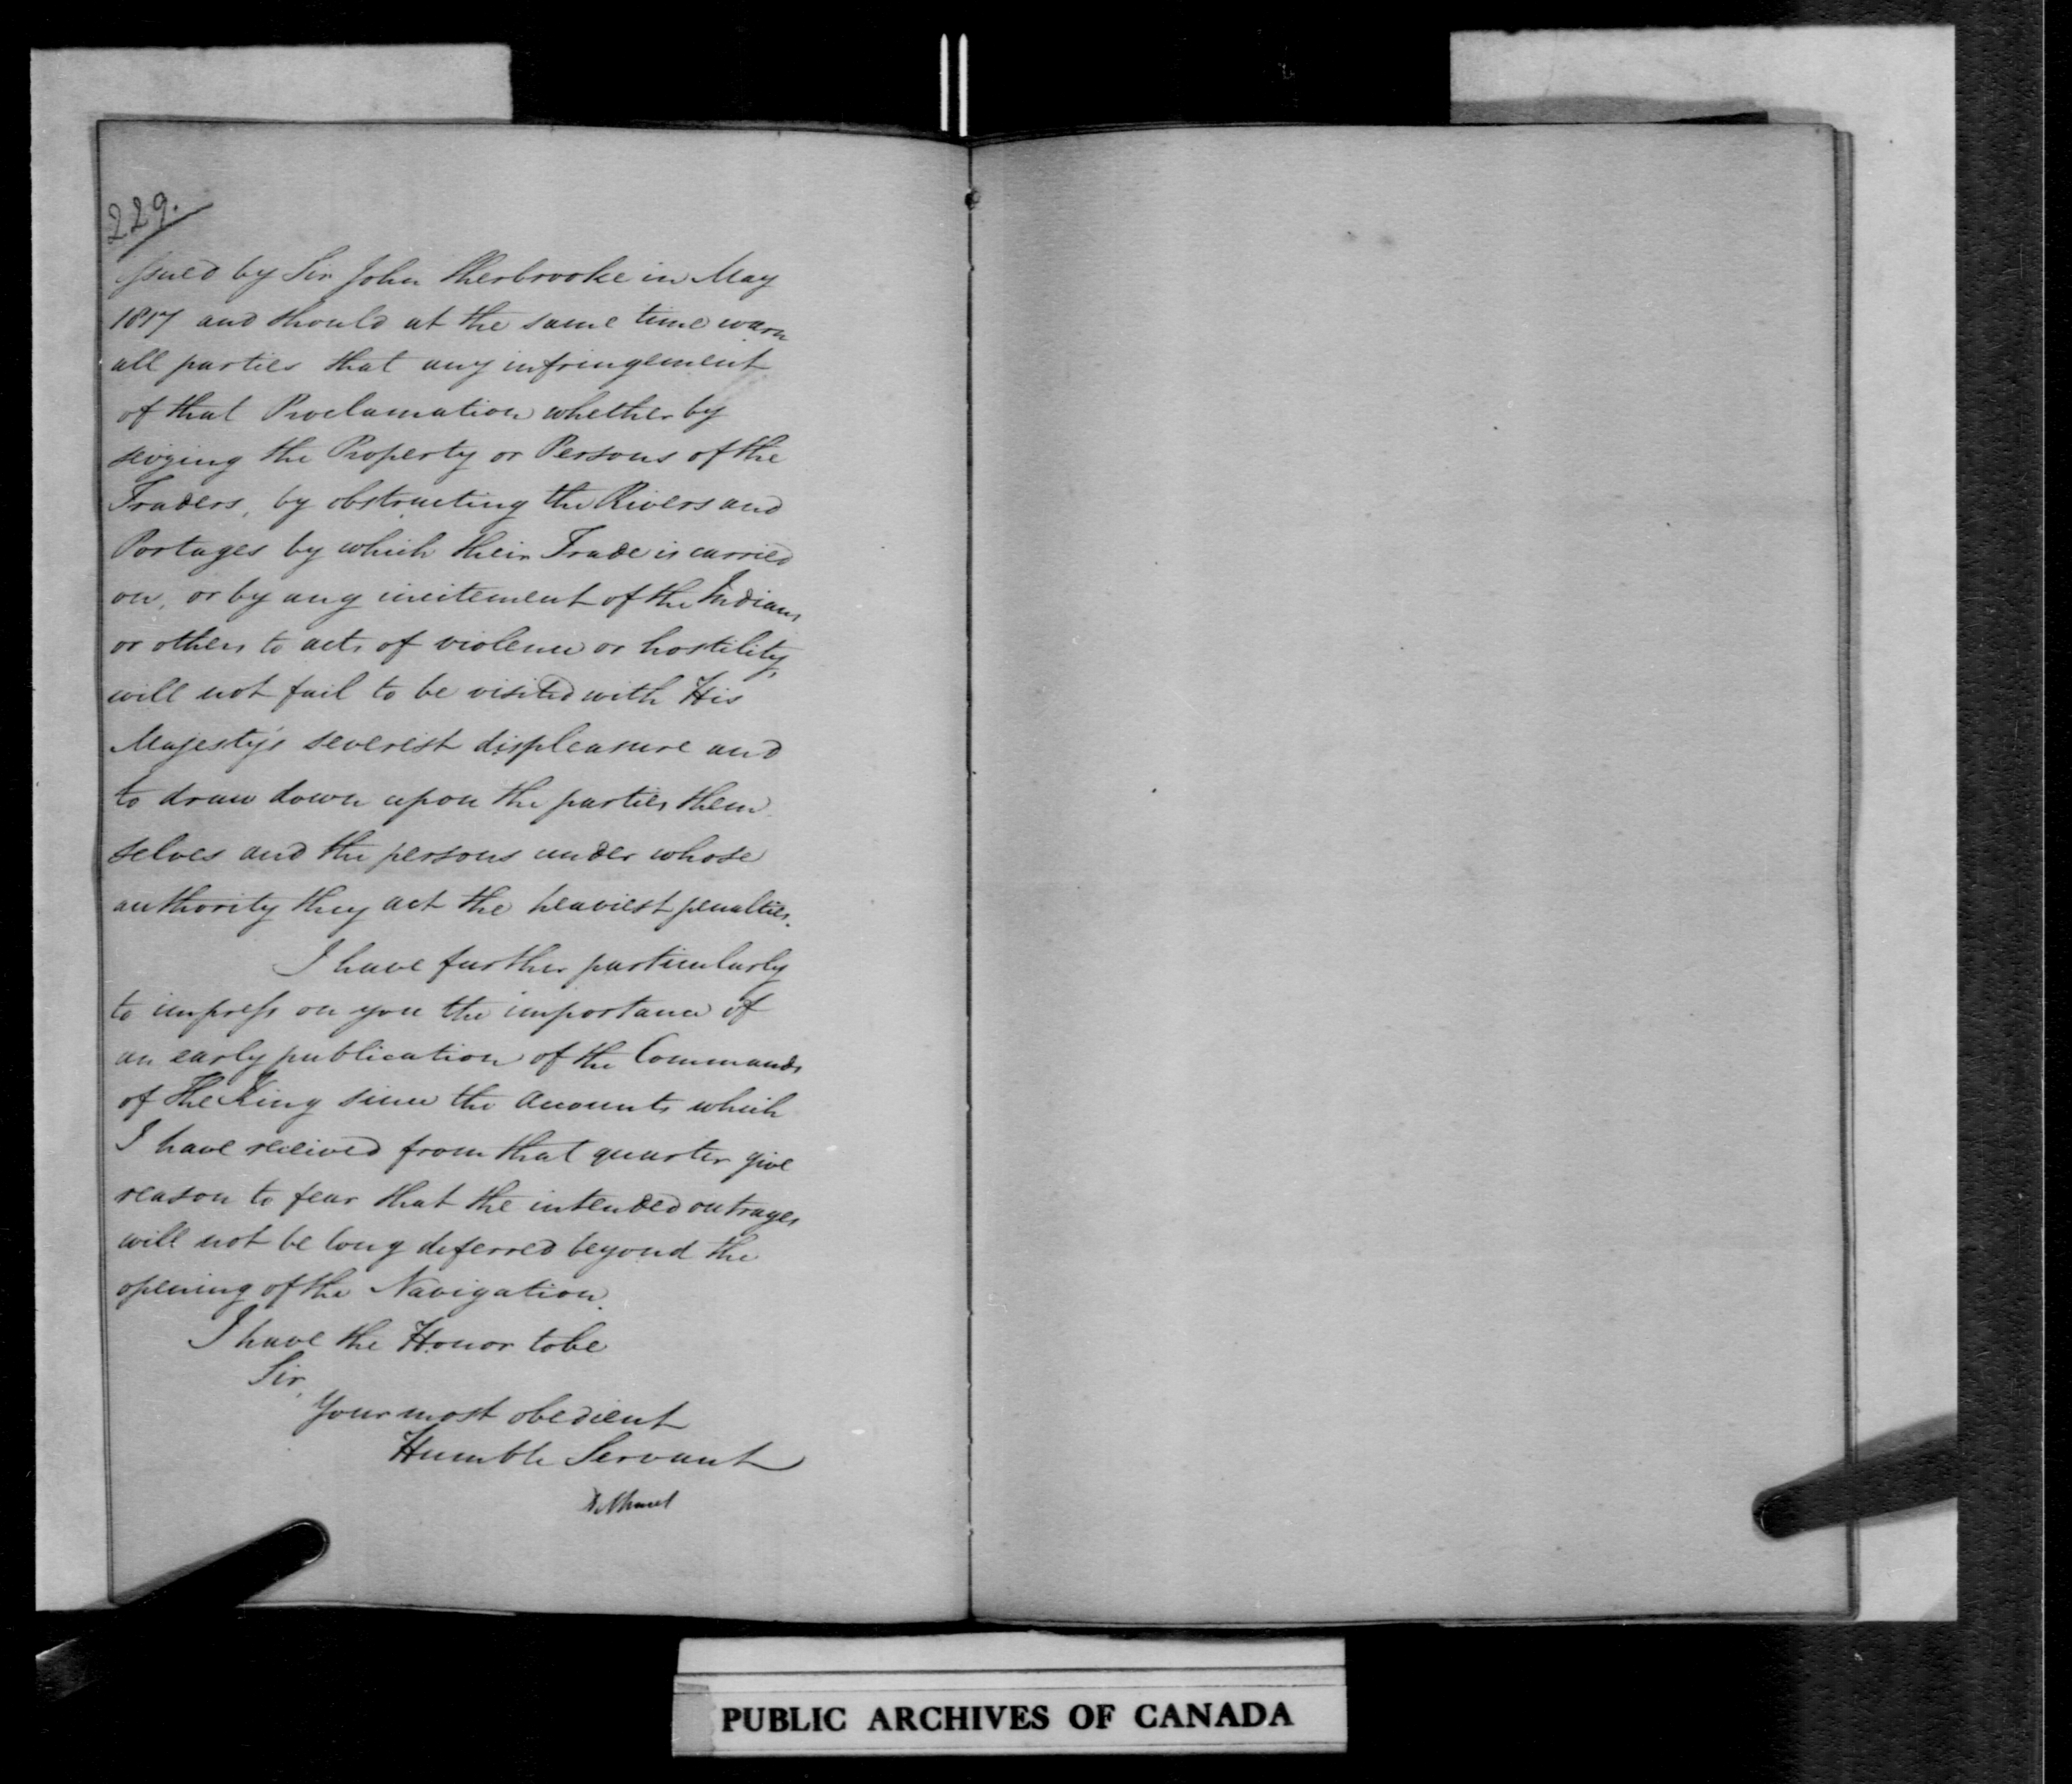 229.
issued by Sir John Sherbrooke in May
1817 and should at the same time warn
all parties that any infringement
of that Proclamation whether by
seizing the Property or Persons of the
Traders, by obstructing the Rivers and
Portages by which their Trade is carried
on, or by any incitement of the Indians
or others to acts of violence or hostility,
will not fail to be visited with His
Majesty's severist displeasure and
to draw down upon the parties them
selves and the persons under whose
authority they act the heaviest penalties.
I have further particularly
to impress on you the importance of
an early publication of the Commands
of The King since the accounts which
I have received from that quarter give
reason to fear that the intended outrages
will not be long deferred beyond the
opening of the Navigation.
I have the Honor to be
Sir,
Your most obedient
Humble Servant
PUBLIC ARCHIVES OF CANADA